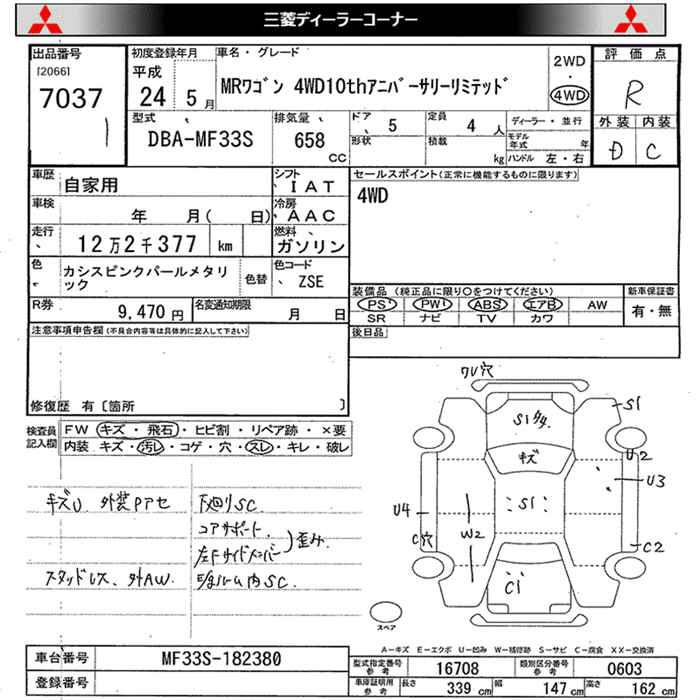 三菱ディーラーコーナー
出品番号
[2066]
7037
1
初度登録年月
平成
24 5月
車名・グレード
MRワゴン 4WD10thアニバーサリーリミテッド
2WD
・
4WD
評価点
R
外装 内装
D C
型式
DBA-MF33S
排気量
658
CC
ドア 5
形状
定員 4 人
積載 kg
ディーラー・並行
モデル年式 年
ハンドル 左・右
車歴 自家用
シフト IAT
車検 年 月( 日)
冷房 AAC
走行 12万2千377 km
燃料 ガソリン
色 カシスピンクパールメタリック
色替
色コード ZSE
R券 9,470円
名変通知期限 月 日
セールスポイント(正常に機能するものに限ります)
4WD
装備品(純正品に限り○をつけてください)
PS PW ABS エアB AW
SR ナビ TV カワ
新車保証書
有・無
後日品
注意事項申告欄(不具合内容等は具体的に記入して下さい)
修復歴 有〔箇所 〕
検査員記入欄
FW キズ・飛石・ヒビ割・リペア跡・×要
内装 キズ・汚レ・コゲ・穴・スレ・キレ・破レ
キズU 外装Pアセ
スタッドレス、外AW.
下廻りSC
コアサポート.
左Fサイドメンバー
歪み
ルーム内SC.
S1
S1
キズ
U2
U3
S1
U4
W2
C穴
C2
C1
スペア
A-キズ E-エクボ U-凹み W-補修跡 S-サビ C-腐食 XX-交換済
車台番号 MF33S-182380
登録番号
型式指定番号参考 16708
類別区分番号参考 0603
車庫証明用参考 長さ 339 cm 幅 147 cm 高さ 162 cm